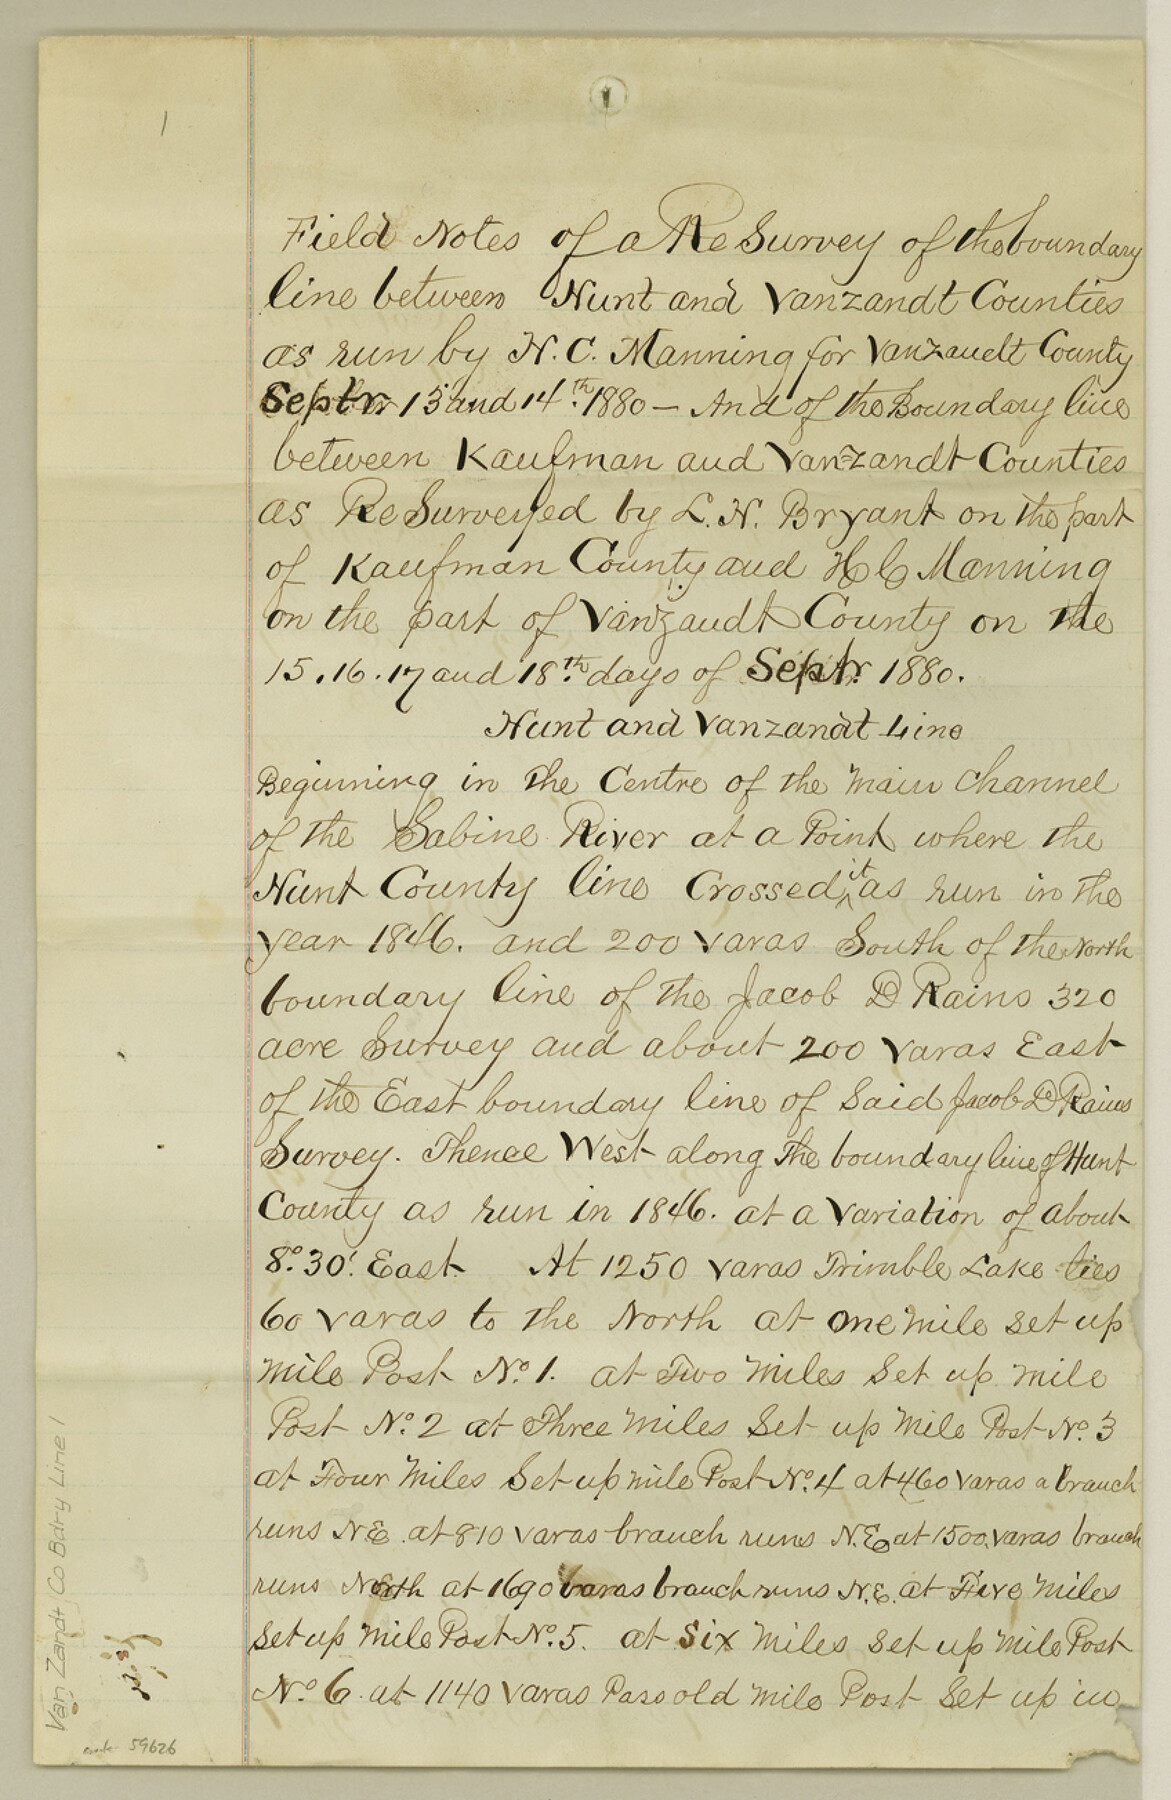 1
Field Notes of a ReSurvey of the boundary
line between Hunt and Vanzandt Counties
as run by H. C. Manning for Vanzandt County
Septr. 13 and 14th. 1880 – And of the Boundary line
between Kaufman and Vanzandt Counties
as ReSurveyed by L. N. Bryant on the part
of Kaufman County and H C Manning
on the part of Vanzandt County on the
15. 16. 17 and 18th. days of Septr. 1880.
Hunt and Vanzandt Line
Beginning in the Centre of the main Channel
of the Sabine River at a Point where the
Hunt County line Crossed it as run in the
year 1846. and 200 varas South of the North
boundary line of the Jacob D Rains 320
acre Survey and about 200 varas East
of the East boundary line of Said Jacob D Rains
Survey. Thence West along the boundary line of Hunt
County as run in 1846. at a Variation of about
8°. 30'. East. At 1250 varas Trimble Lake lies
60 varas to the North at one mile set up
mile Post No. 1. at Two miles Set up mile
Post No. 2 at Three miles Set up Mile Post No. 3
at Four Miles Set up mile Post No. 4 at 460 varas a branch
runs N.E. at 810 varas branch runs N.E. at 1500. varas branch
runs North at 1690 varas branch runs N.E. at Five miles
Set up mile Post No. 5. at Six miles Set up Mile Post
No. 6. at 1140 varas Pass old mile Post Set up in
Van Zandt Co Bdry Line 1
59626